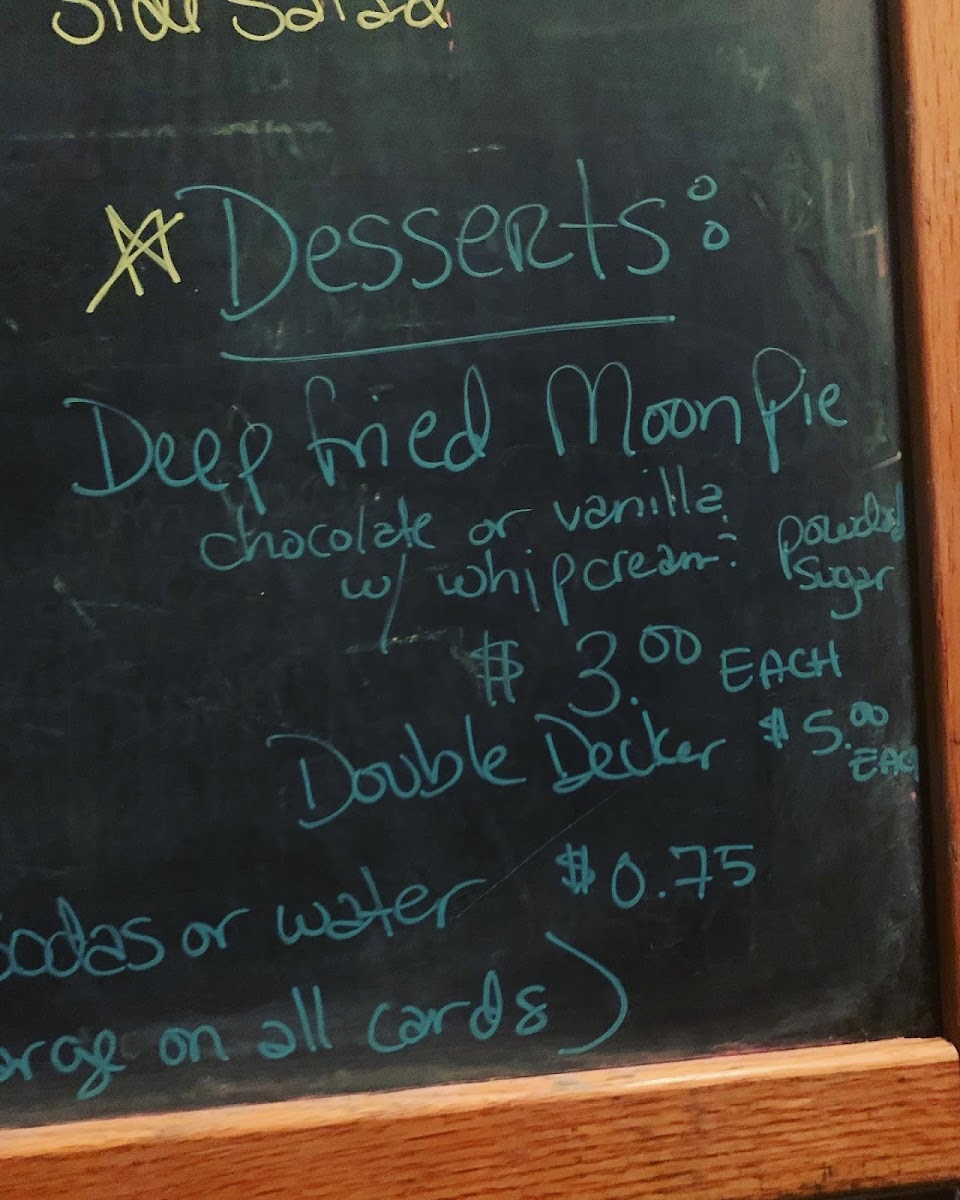 Side Salad
Desserts:
Deep fried Moon Pie
chocolate or vanilla
w/ whipcream & powded
sugar
$3.00 EACH
Double Decker $5.00
EACH
sodas or water $0.75
arge on all cards)